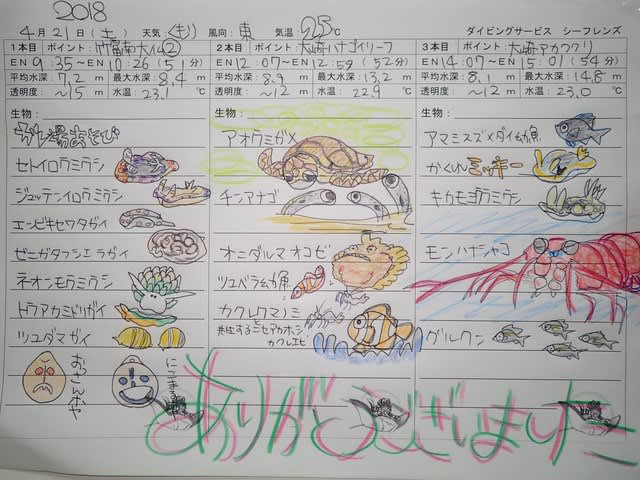 2018
4月21日(土) 天気: 風向: 東 気温: 25℃ ダイビングサービス シーフレンズ
1本目 ポイント: 竹富南 ②
EN 9:35〜EN 10:26 (51分)
平均水深: 7.2m 最大水深: 8.4m
透明度: 〜15m 水温: 23.1℃
生物:
あそび
セトイロウミウシ
ジュッテンイロウミウシ
エンビキセワタガイ
ゼニガタフシエラガイ
ネオンモウミウシ
トウアカミドリガイ
ツユダマガイ
おっさんホヤ
にこ
2本目 ポイント: 大崎ハナゴイリーフ
EN 12:07〜EN 12:59 (52分)
平均水深: 8.9m 最大水深: 13.2m
透明度: 〜12m 水温: 22.9℃
生物:
アオウミガメ
チンアナゴ
オニダルマオコゼ
ツユベラ幼魚
カクレクマノミ
と
共生するニセアカホシ
カクレエビ
3本目 ポイント: 大崎アカククリ
EN 14:07〜EN 15:01 (54分)
平均水深: 8.1m 最大水深: 14.8m
透明度: 〜12m 水温: 23.0℃
生物:
アマミスズメダイ幼魚
かくれミッキー
キカモヨウウミウシ
モンハナシャコ
グルクン
ありがとうございました